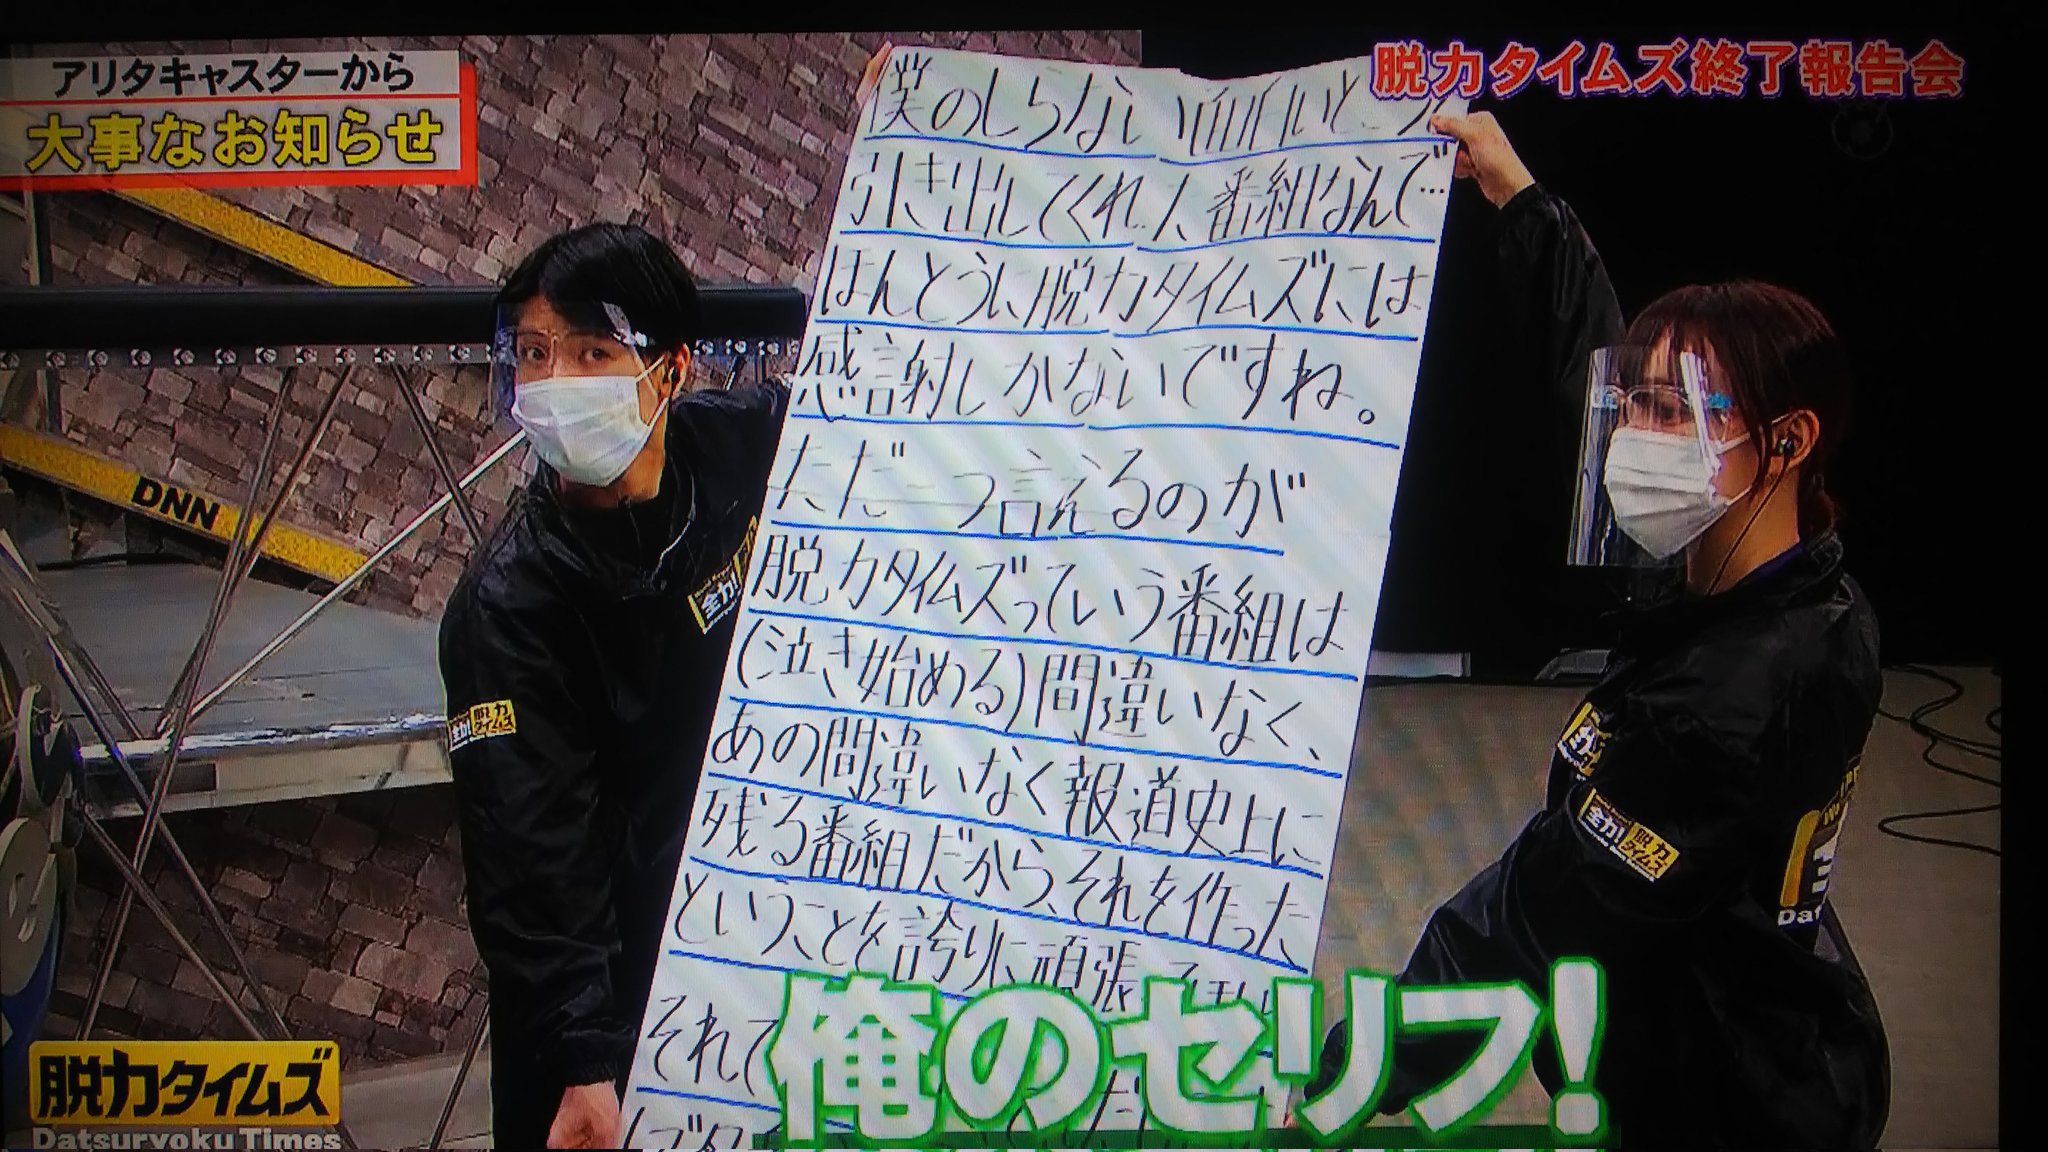 アリタキャスターから
大事なお知らせ
脱力タイムズ終了報告会
僕のしらない面白いところ
引き出してくれた番組なんで…
ほんとうに脱力タイムズには
感謝しかないですね。
ただ一つ言えるのが
脱力タイムズっていう番組は
(泣き始める)間違いなく、
あの間違いなく報道史上に
残る番組だから、それを作った
ということを誇りに頑張
それで
俺のセリフ!
DNN
全力!
全力!脱力タイムズ
全力!脱力タイムズ
脱力タイムズ
Datsuryoku Times